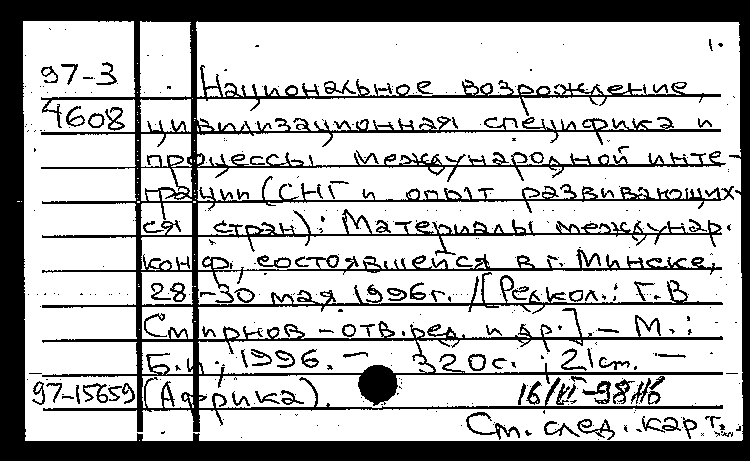 1.
97-3 Национальное возрождение,
4608 цивилизационная специфика и
процессы международной инте-
грации (СНГ и опыт развивающих-
ся стран): Материалы междунар.
конф., состоявшейся в г. Минске,
28-30 мая 1996г. /[Редкол.: Г.В
Смирнов - отв.ред. и др.]. - М.:
Б.и., 1996. - 320с.; 21см. -
97-15659 (Африка). 16/VI-98
См. след. карт.